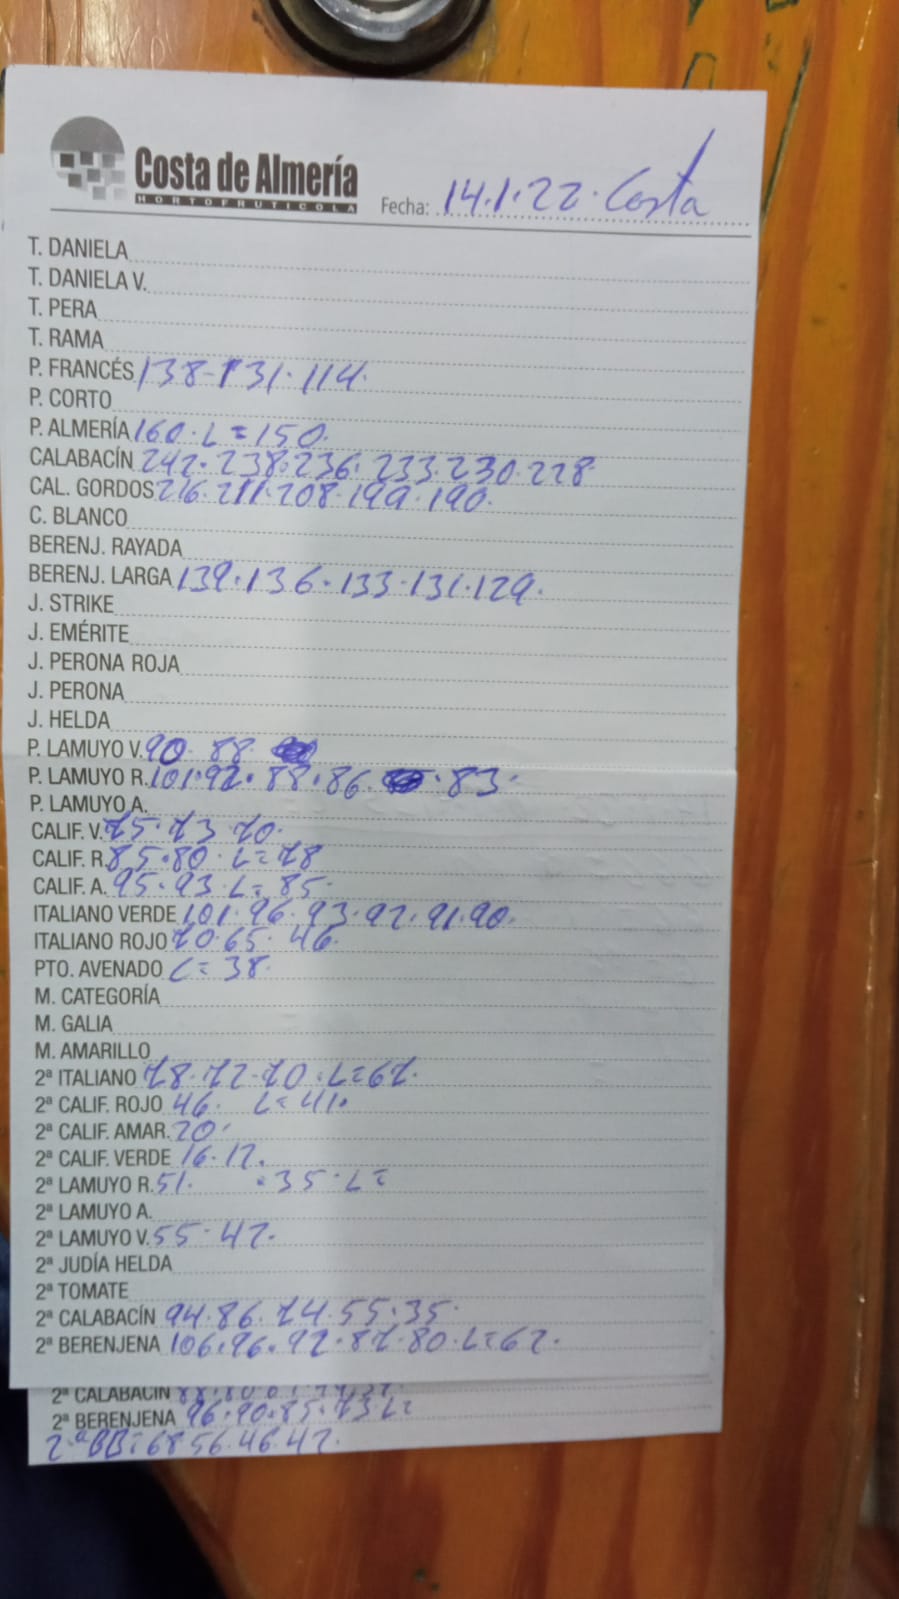 Costa de Almería
HORTOFRUTICOLA
Fecha: 14.1.22. Costa
T. DANIELA
T. DANIELA V.
T. PERA
T. RAMA
P. FRANCÉS 138-131.114.
P. CORTO
P. ALMERÍA 160.L=150.
CALABACÍN 242.238.236.233.230.228
CAL. GORDOS 216.211.208.199.190.
C. BLANCO
BERENJ. RAYADA
BERENJ. LARGA 139.136.133.131.129.
J. STRIKE
J. EMÉRITE
J. PERONA ROJA
J. PERONA
J. HELDA
P. LAMUYO V. 90.88.
P. LAMUYO R. 101.92.88.86. .83.
P. LAMUYO A.
CALIF. V. 75.73.70.
CALIF. R. 85.80.L=78
CALIF. A. 95.93.L=85.
ITALIANO VERDE 101.96.93.92.91.90.
ITALIANO ROJO 70.65.46.
PTO. AVENADO L=38.
M. CATEGORÍA
M. GALIA
M. AMARILLO
2ª ITALIANO 78.72.70.L=67.
2ª CALIF. ROJO 46. L=41.
2ª CALIF. AMAR. 20.
2ª CALIF. VERDE 16.12.
2ª LAMUYO R. 51. .35.L=
2ª LAMUYO A.
2ª LAMUYO V. 55.42.
2ª JUDÍA HELDA
2ª TOMATE
2ª CALABACÍN 94.86.74.55.35.
2ª BERENJENA 106.96.92.87.80.L=62.
2ª CALABACÍN
2ª BERENJENA 96.90.85.73 L=
2ªBB=68 56.46.42.